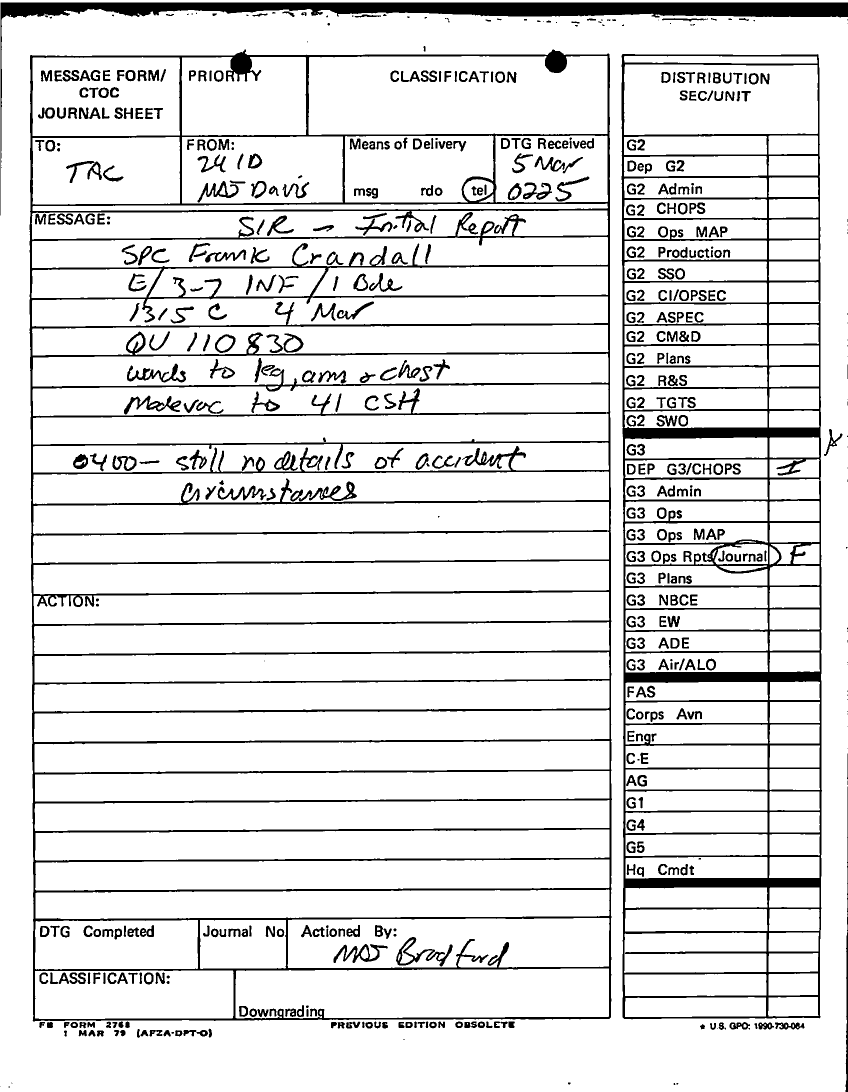 MESSAGE FORM/
CTOC
JOURNAL SHEET
PRIORITY
CLASSIFICATION
TO:
TAC
FROM:
24 ID
MAJ Davis
Means of Delivery
msg rdo tel
DTG Received
5 Mar
0225
MESSAGE:
SIR - Initial Report
SPC Frank Crandall
E/3-7 INF/1 Bde
1315 C 4 Mar
QU 110830
wonds to leg, arm & chest
Medevac to 41 CSH
0400- still no details of accident
circumstances
ACTION:
DTG Completed
Journal No.
Actioned By:
MAJ Bradford
CLASSIFICATION:
Downgrading
FB FORM 2768
1 MAR 79 (AFZA-DPT-O)
PREVIOUS EDITION OBSOLETE
DISTRIBUTION
SEC/UNIT
G2
Dep G2
G2 Admin
G2 CHOPS
G2 Ops MAP
G2 Production
G2 SSO
G2 CI/OPSEC
G2 ASPEC
G2 CM&D
G2 Plans
G2 R&S
G2 TGTS
G2 SWO
G3
DEP G3/CHOPS I
G3 Admin
G3 Ops
G3 Ops MAP
G3 Ops Rpts/Journal F
G3 Plans
G3 NBCE
G3 EW
G3 ADE
G3 Air/ALO
FAS
Corps Avn
Engr
C-E
AG
G1
G4
G5
Hq Cmdt
* U.S. GPO: 1990-730-064